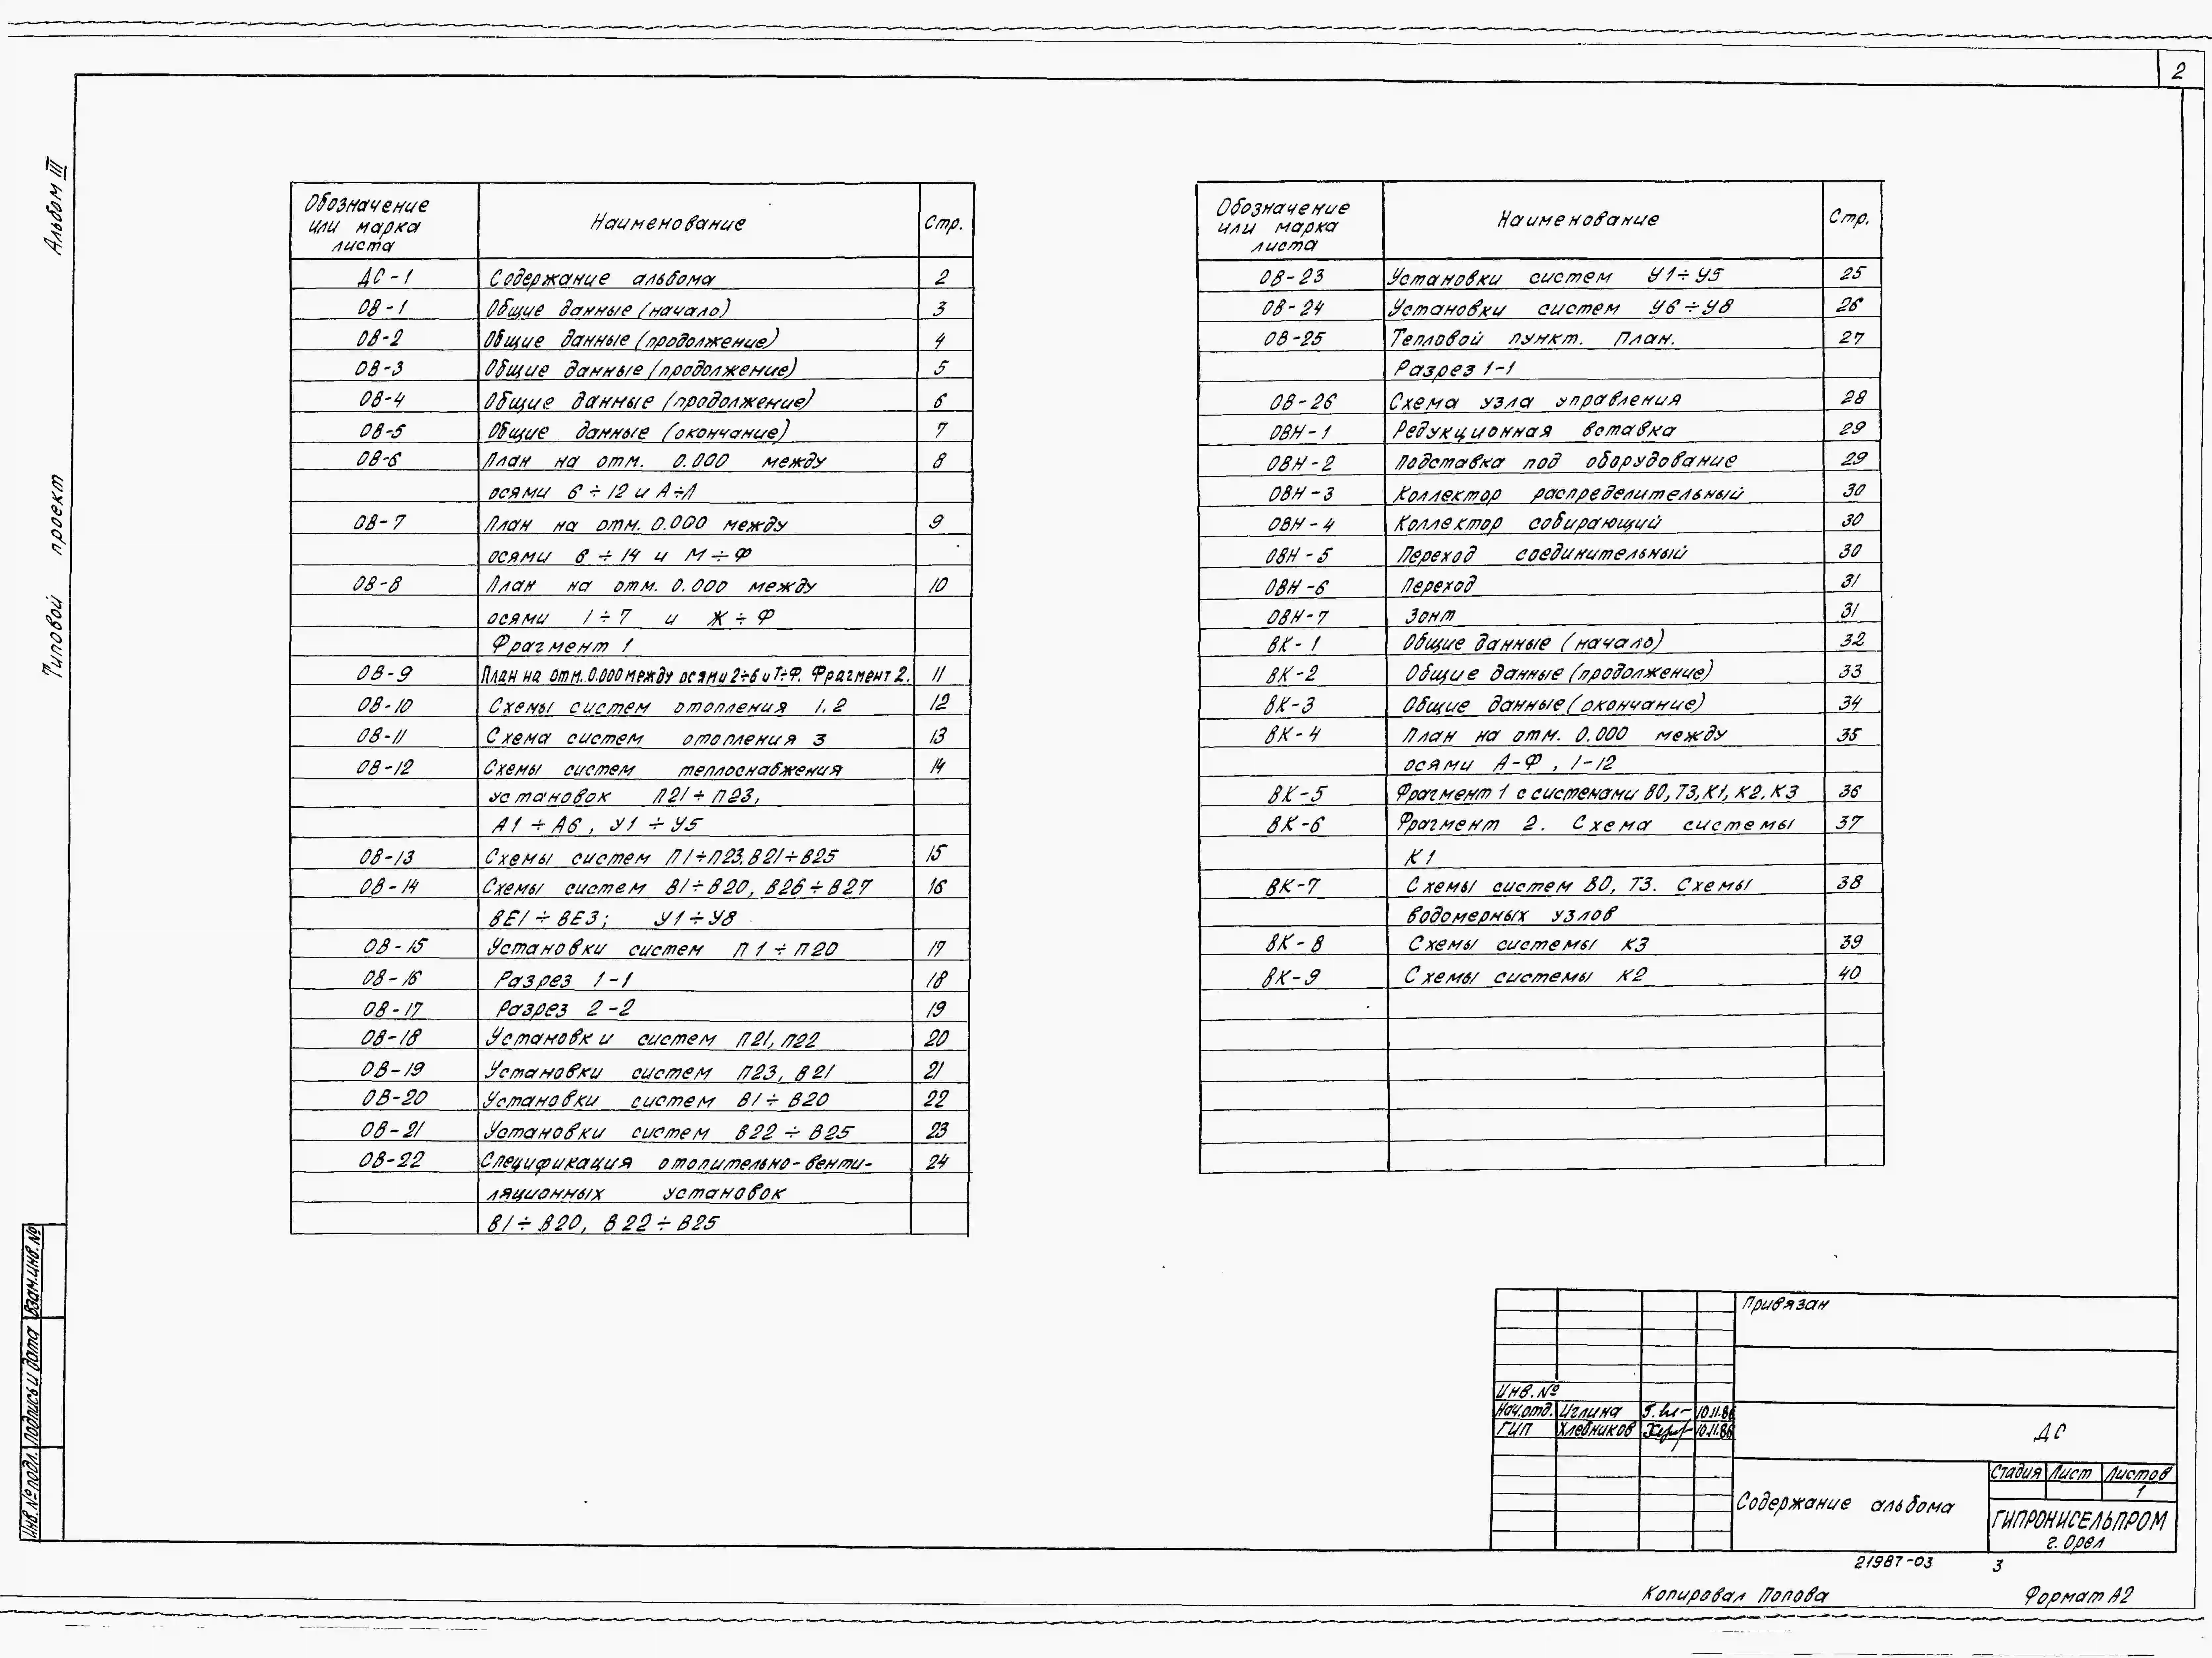 2
Альбом III
Типовой проект
Обозначение или марка листа Наименование Стр.
ДС-1 Содержание альбома 2
ОВ-1 Общие данные (начало) 3
ОВ-2 Общие данные (продолжение) 4
ОВ-3 Общие данные (продолжение) 5
ОВ-4 Общие данные (продолжение) 6
ОВ-5 Общие данные (окончание) 7
ОВ-6 План на отм. 0.000 между 8
осями 6÷12 и А÷Л
ОВ-7 План на отм. 0.000 между 9
осями 8÷14 и М÷Ф
ОВ-8 План на отм. 0.000 между 10
осями 1÷7 и Ж÷Ф
Фрагмент 1
ОВ-9 План на отм. 0.000 между осями 2÷6 и Т÷Ф. Фрагмент 2. 11
ОВ-10 Схемы систем отопления 1.2 12
ОВ-11 Схема систем отопления 3 13
ОВ-12 Схемы систем теплоснабжения 14
установок П21÷П23,
А1÷А6, У1÷У5
ОВ-13 Схемы систем П1÷П23, В21÷В25 15
ОВ-14 Схемы систем В1÷В20, В26÷В27 16
ВЕ1÷ВЕ3; У1÷У8
ОВ-15 Установки систем П1÷П20 17
ОВ-16 Разрез 1-1 18
ОВ-17 Разрез 2-2 19
ОВ-18 Установки систем П21, П22 20
ОВ-19 Установки систем П23, В21 21
ОВ-20 Установки систем В1÷В20 22
ОВ-21 Установки систем В22÷В25 23
ОВ-22 Спецификация отопительно-венти- 24
ляционных установок
В1÷В20, В22÷В25
Обозначение или марка листа Наименование Стр.
ОВ-23 Установки систем У1÷У5 25
ОВ-24 Установки систем У6÷У8 26
ОВ-25 Тепловой пункт. План. 27
Разрез 1-1
ОВ-26 Схема узла управления 28
ОВН-1 Редукционная вставка 29
ОВН-2 Подставка под оборудование 29
ОВН-3 Коллектор распределительный 30
ОВН-4 Коллектор собирающий 30
ОВН-5 Переход соединительный 30
ОВН-6 Переход 31
ОВН-7 Зонт 31
ВК-1 Общие данные (начало) 32
ВК-2 Общие данные (продолжение) 33
ВК-3 Общие данные (окончание) 34
ВК-4 План на отм. 0.000 между 35
осями А-Ф, 1-12
ВК-5 Фрагмент 1 с системами ВО, Т3, К1, К2, К3 36
ВК-6 Фрагмент 2. Схема системы 37
К1
ВК-7 Схемы систем ВО, Т3. Схемы 38
водомерных узлов
ВК-8 Схемы системы К3 39
ВК-9 Схемы системы К2 40
Взам.инв.№
Подпись и дата
Инв.№подл.
Привязан
Инв.№
Нач.отд. Иглина 10.11.86
ГИП Хлебников 10.11.86
ДС
Содержание альбома
Стадия Лист Листов
1
ГИПРОНИСЕЛЬПРОМ
г. Орел
21987-03 3
Копировал Попова Формат А2